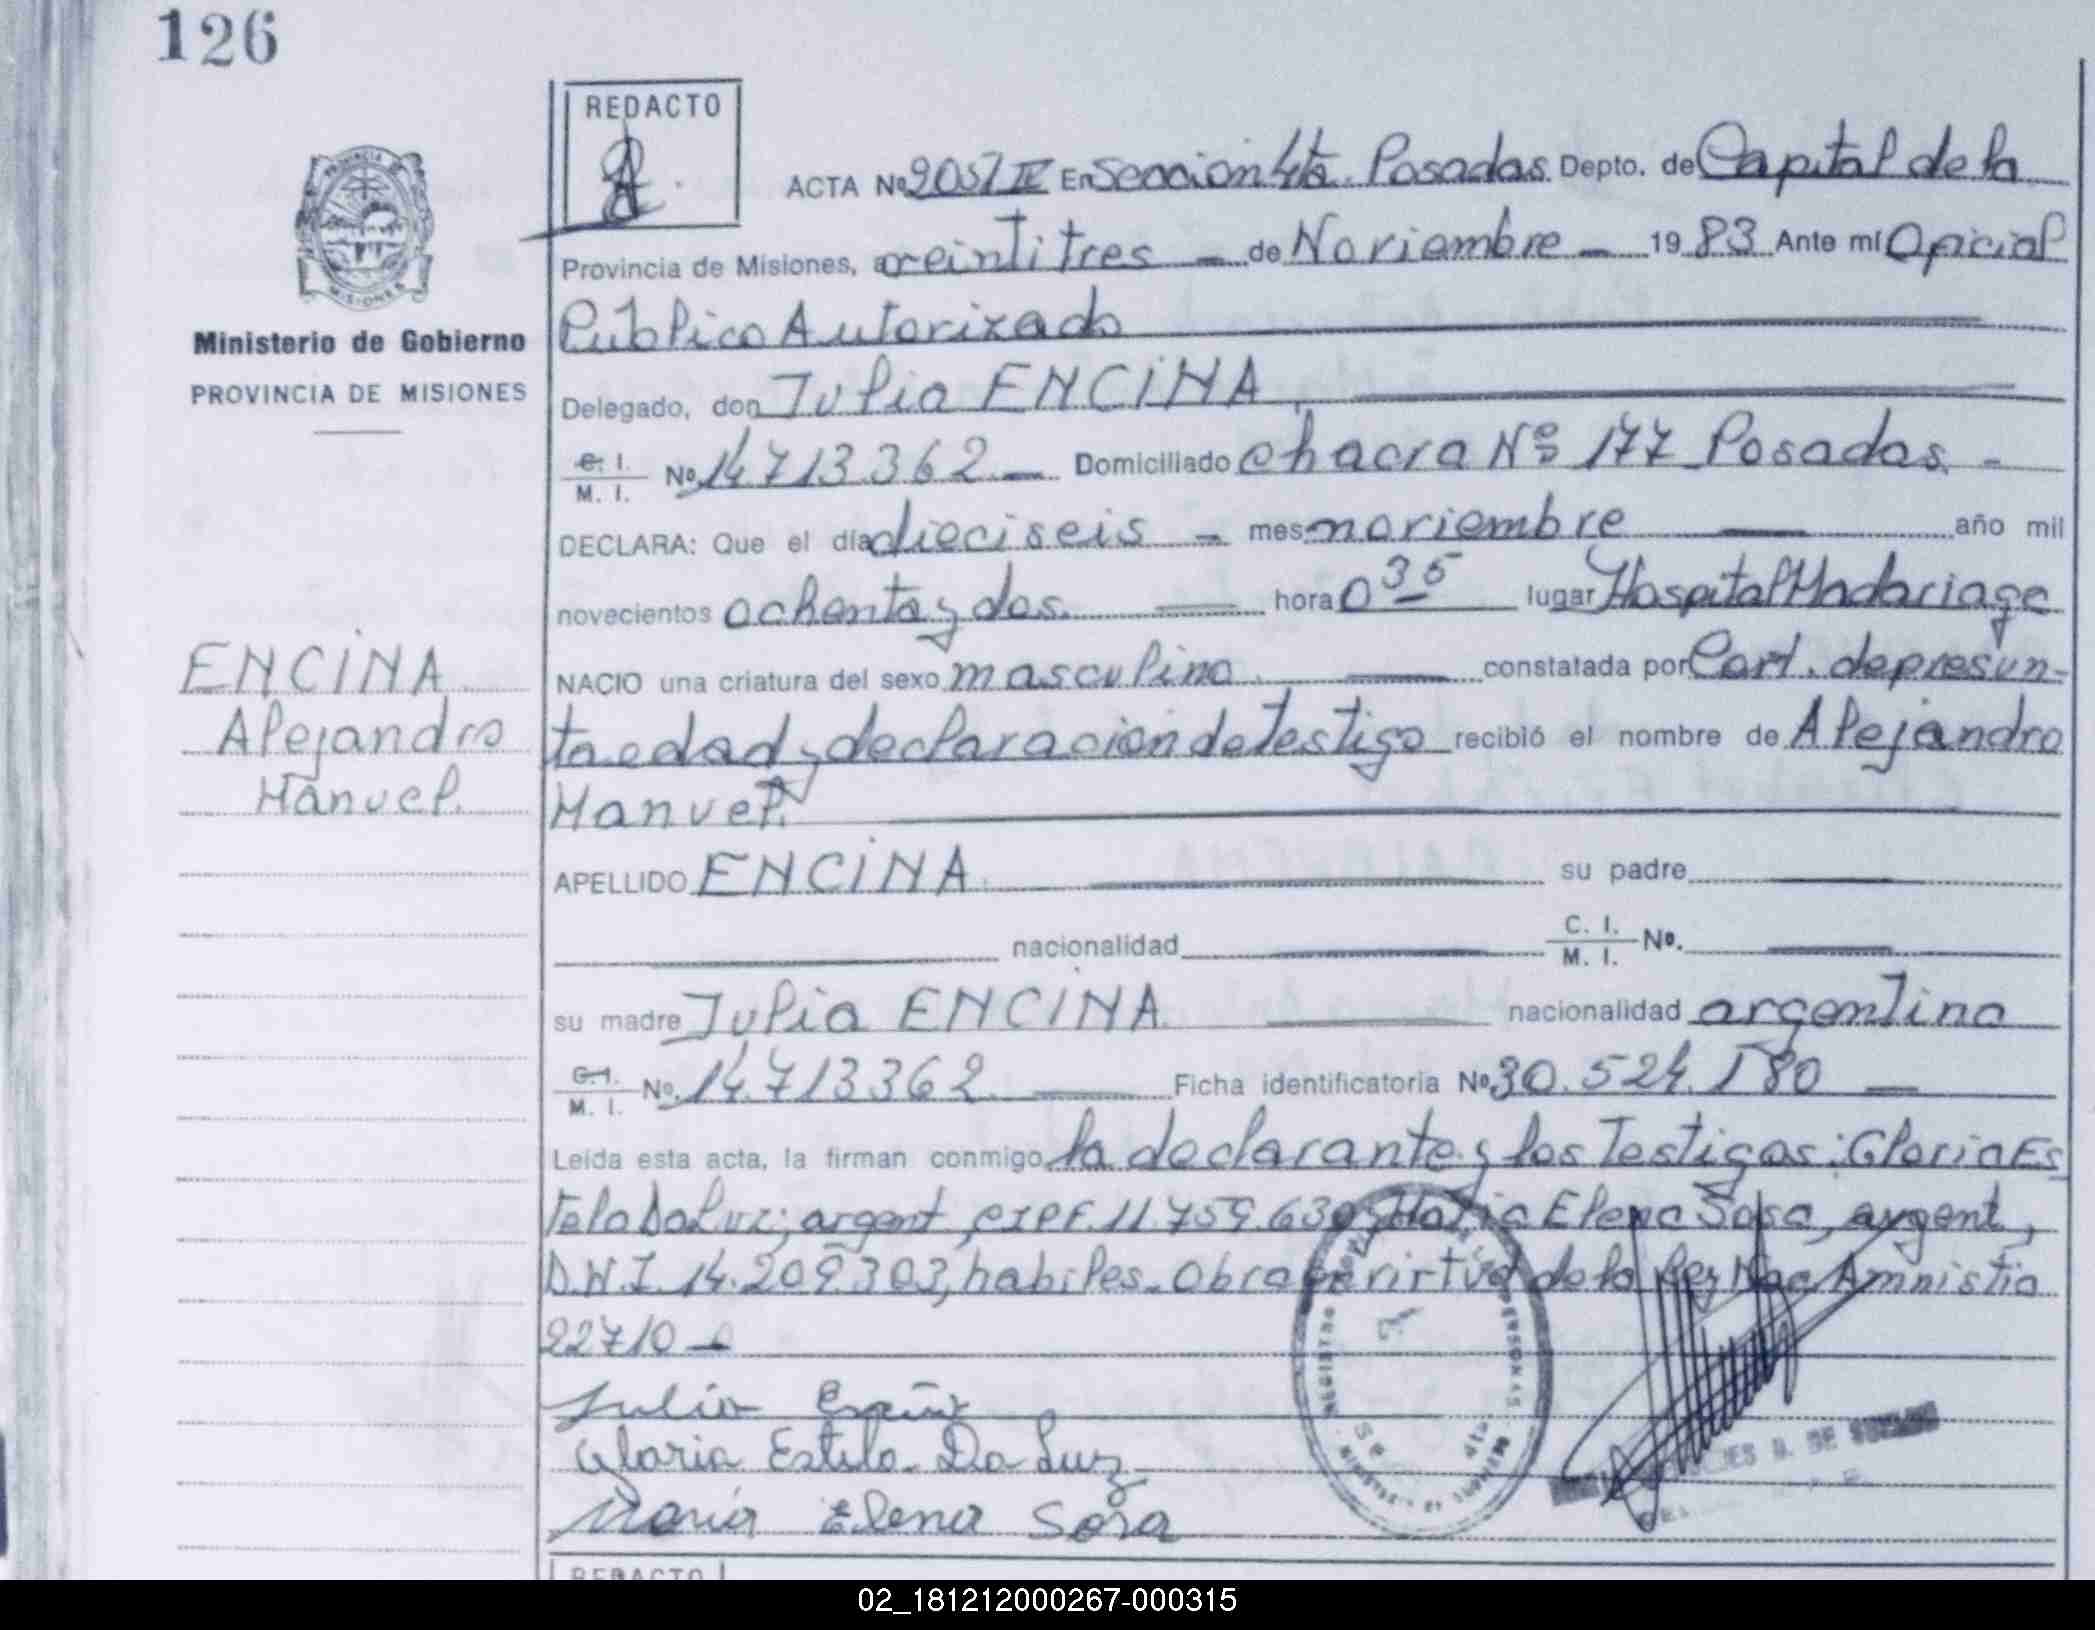 126
REDACTO
ACTA Nº 2051 IV En Seccion 4ta. Posadas. Depto. de Capital de la
Provincia de Misiones, a veintitres - de Noviembre - 19 83 Ante mí Oficial
Público Autorizado
Ministerio de Gobierno
PROVINCIA DE MISIONES
Delegado, don Julia ENCINA
C. I. / M. I. Nº 14.713.362.- Domiciliado chacra Nº 177 Posadas. -
DECLARA: Que el día dieciseis - mes noviembre año mil
novecientos ochenta y dos. hora 0 35 lugar Hospital Madariaga
ENCINA
Alejandro
Manuel.
NACIO una criatura del sexo masculino. constatada por Cert. de presun-
ta edad y declaración de testigo recibió el nombre de Alejandro
Manuel.
APELLIDO ENCINA. su padre
nacionalidad C. I. / M. I. Nº.
su madre Julia ENCINA. nacionalidad argentina
C. I. / M. I. Nº. 14.713362. Ficha identificatoria Nº 30.524.180 -
Leída esta acta, la firman conmigo la declarante y los Testigos: Gloria Es
tela Da Luz; argent, CIPF. 11.759.639 y Maria Elena Sosa, argent,
D.N.I. 14.209.303, habiles. Obra en virtud de la Ley Nac. Amnistia
22710 -
Julia Encina
Gloria Estela Da Luz
Maria Elena Sosa
REGISTRO PERSONAS
D. DE
REDACTO
02_181212000267-000315